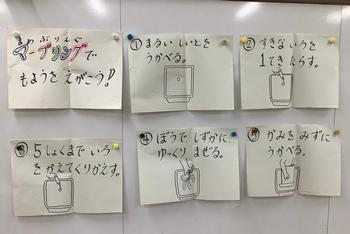 まあぶりんぐ
マーブリングで
もようを えがこう!!
① まるい しいとを
うかべる。
② すきないろを
1てき たらす。
③ 5しょくまで いろ
を かえて くりかえす。
④ ぼうで しずかに
ゆっくり まぜる。
⑤ かみを みずに
うかべる。